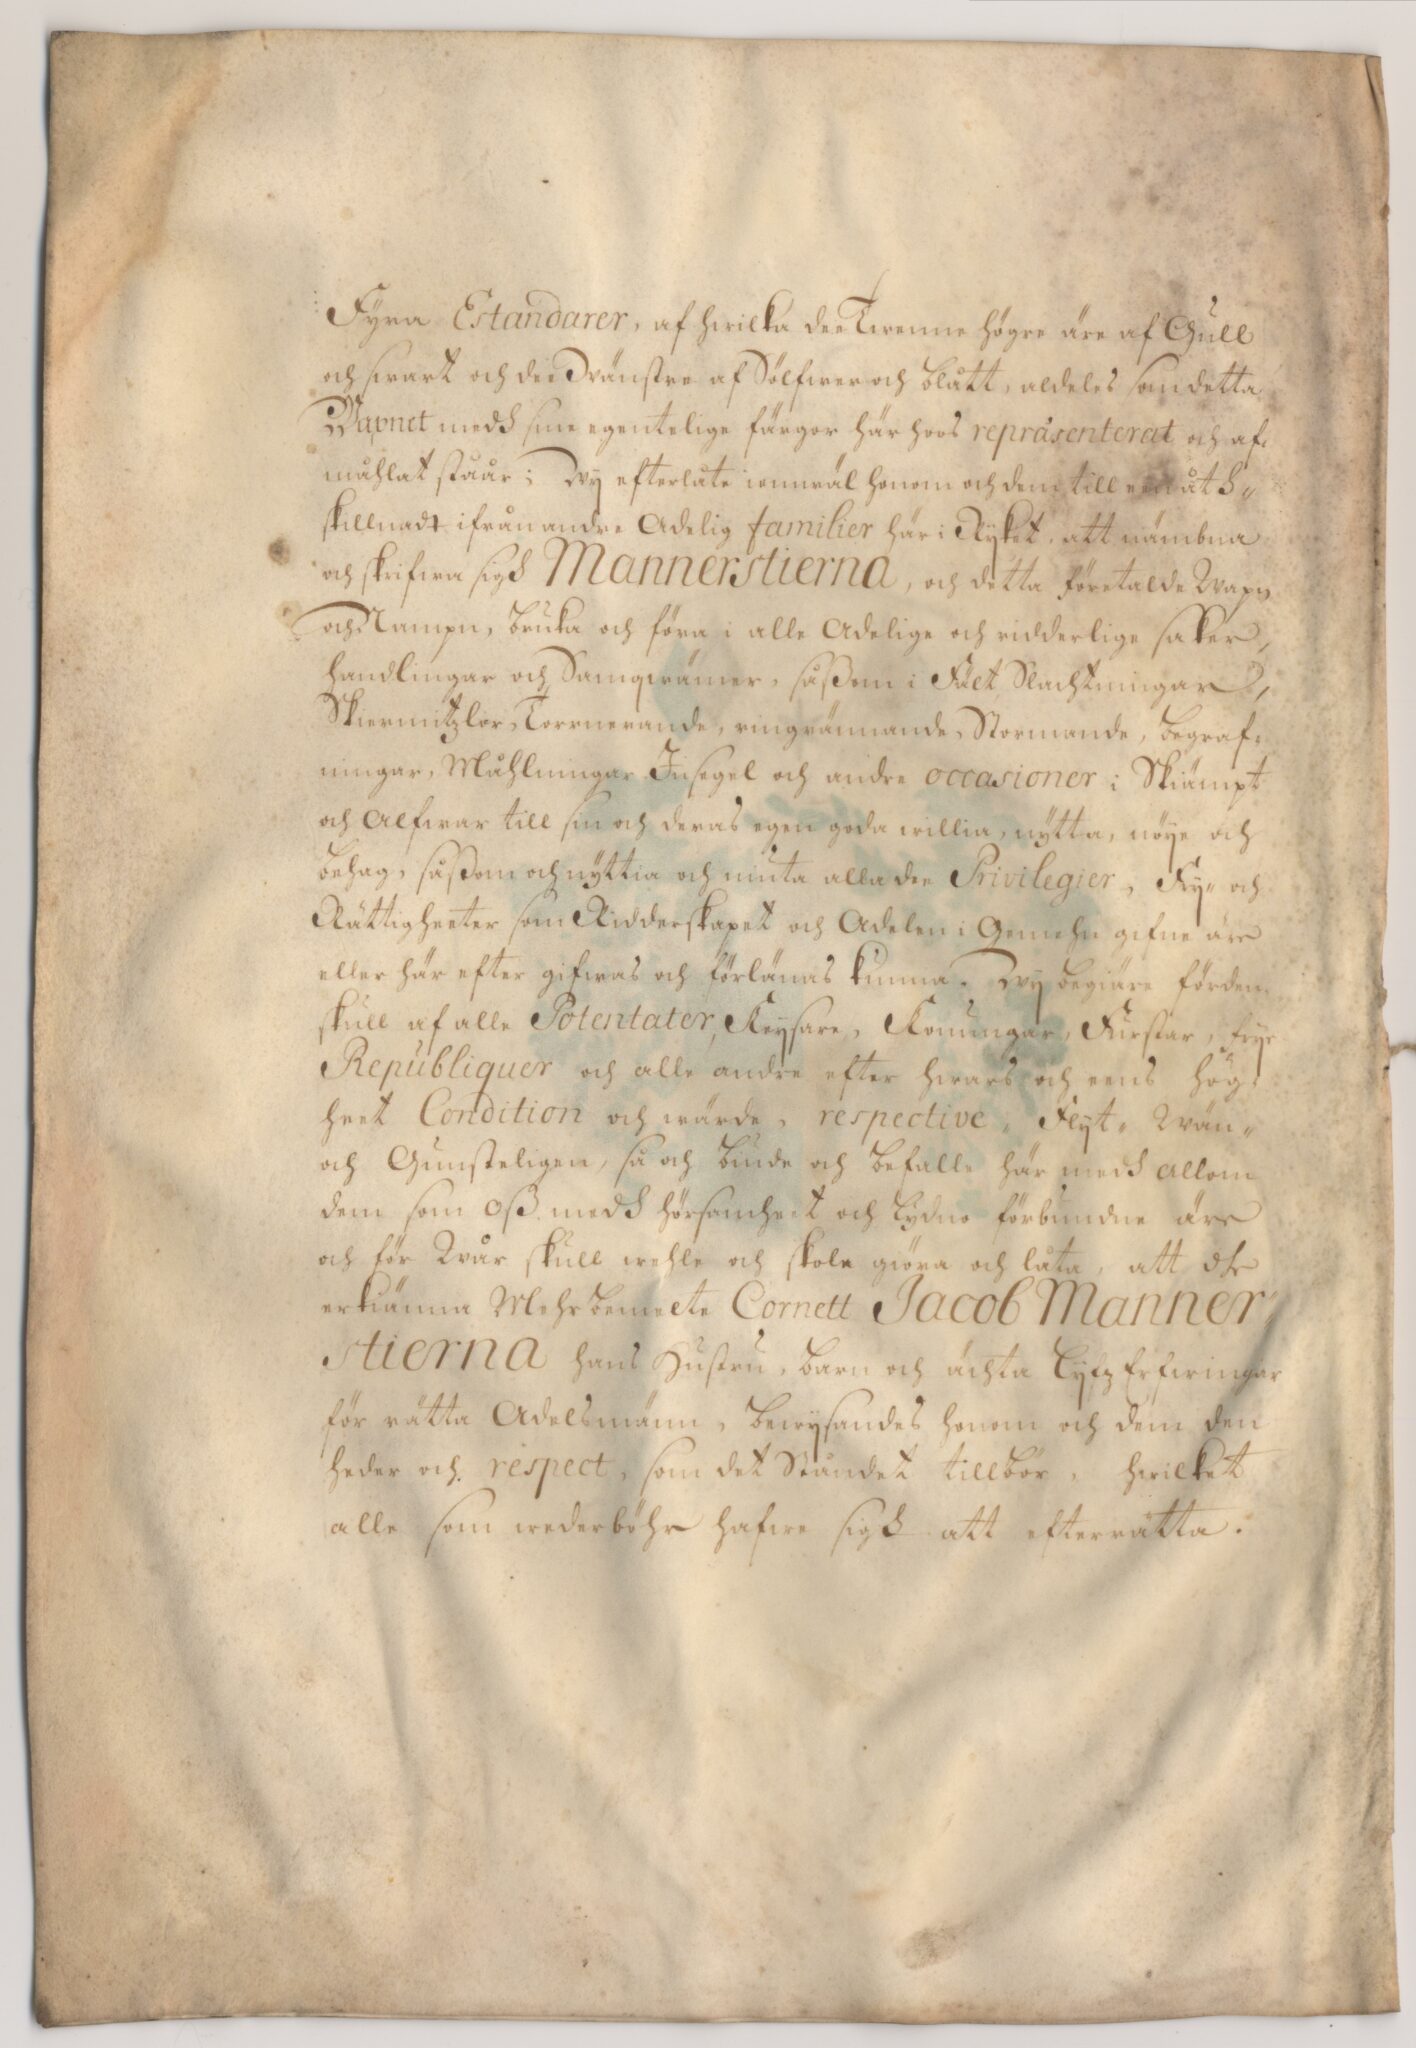 Fÿra Estandarer, af hwilka dee Twenne högre äre af Gull
och swart och dee Wänstre af Sölfwer och blått, aldeles som detta
Wapnet medh sine egentelige färgor här hoos repræsenterat och af-
måhlat ståår; Wij efterlåte iemwäl honom och dem till een åth-
skillnadt ifrån andre Adelig familier här i Rÿket, att nämbna
och skrifwa sigh Mannerstierna, och detta företalde Wapn
och Nampn, bruka och föra i alle Adelige och ridderlige saker,
handlingar och Samqwämer, såßom i Fält Slachtningar,
Skiermitzlor, Torrnerande, ringrännande, Stormande, begraf-
ningar, Måhlningar Insegel och andre occasioner i Skiämpt
och Alfwar till sin och deras egen goda willia, nÿtta, nöije och
behag, såßom och nÿttia och niuta alla dee Privilegier, Frij- och
Rättigheeter som Ridderskapet och Adelen i Gemehn gifne äre
eller här efter gifwas och förlänas kunna. Wij begiäre förden-
skull af alle Potentater, Keÿsare, Konungar, Furstar, frije
Republiquer och alle andre efter hwars och eens hög-
heet Condition och wärde, respective, Flijt- Wän-
och Gunsteligen, så och biude och befalle här medh allom
dem som Oß medh hörsamheet och lÿdno förbundne äre
och för Wår skull wehle och skole giöra och låta, att de
erkiänna Mehrbemelte Cornett Jacob Manner-
stierna hans Hustru, barn och ächta Lijfz Erfwingar
för rätta Adelsmänn, bewÿsandes honom och dem den
heder och respect, som det Ståndet tillbör, hwilket
alle som wederböhr hafwe sigh att efterrätta.